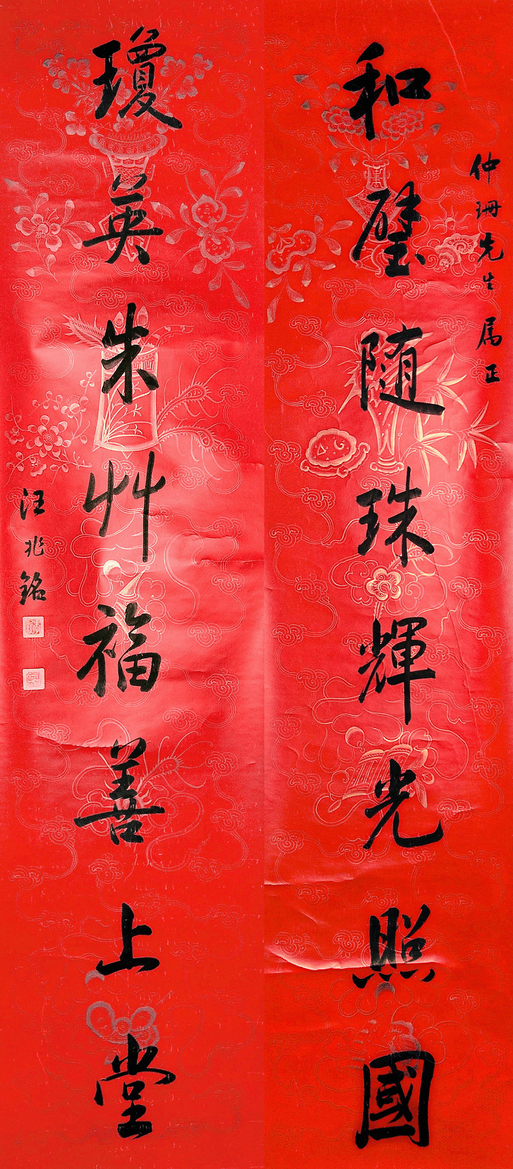 仲珊先生属正
和璧随珠輝光照國
瓊英朱艸福善上堂
汪兆銘